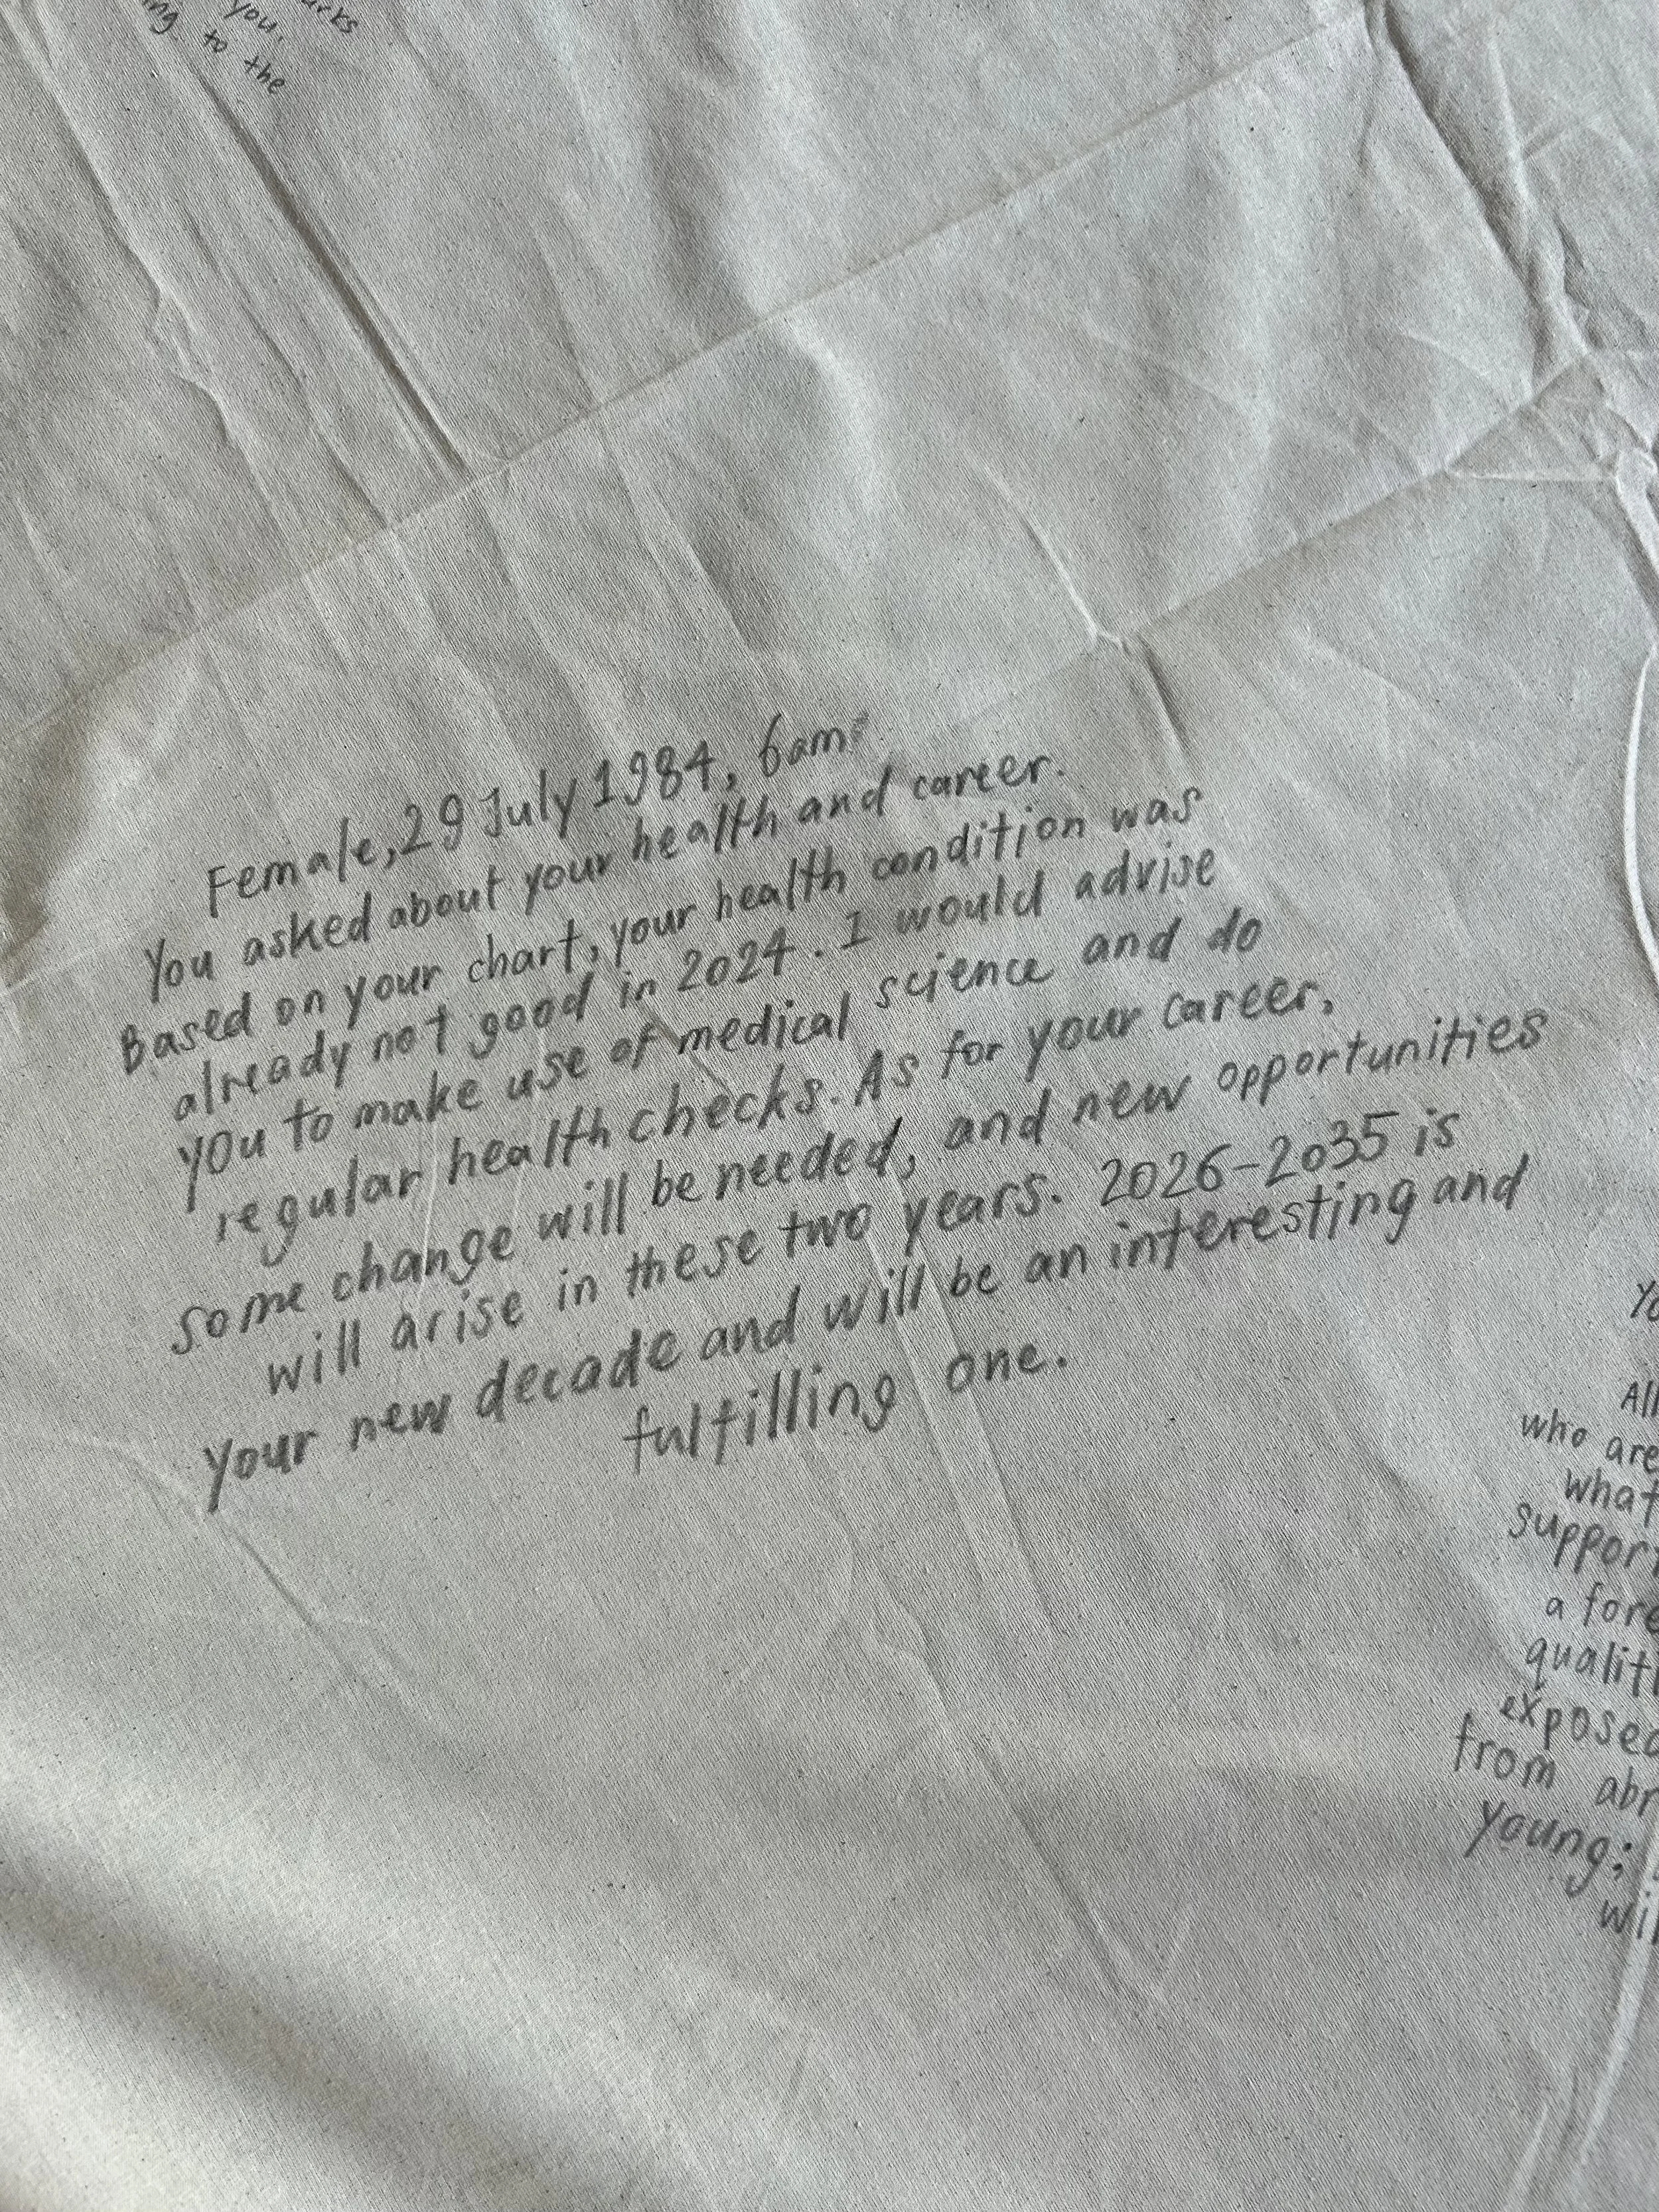 you,
to the
Female, 29 July 1984, 6am
You asked about your health and career.
Based on your chart, your health condition was
already not good in 2024. I would advise
you to make use of medical science and do
regular health checks. As for your career,
some change will be needed, and new opportunities
will arise in these two years. 2026-2035 is
your new decade and will be an interesting and
fulfilling one.
All
who are
what
support
a fore
qualiti
exposed
from abr
young;
wil